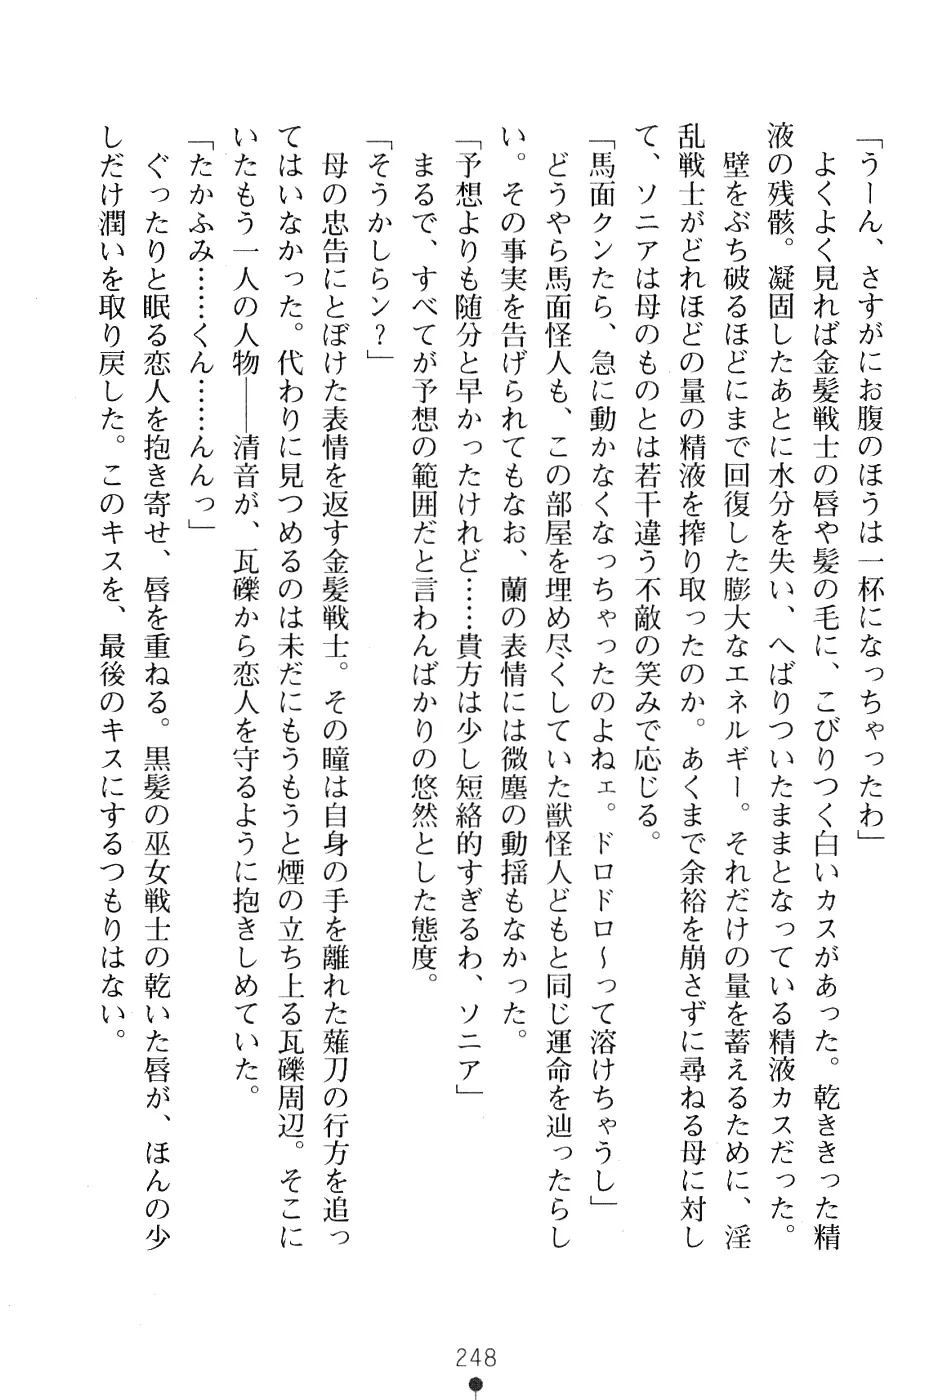 「うーん、さすがにお腹のほうは一杯になっちゃったわ」
　よくよく見れば金髪戦士の唇や髪の毛に、こびりつく白いカスがあった。乾ききった精
液の残骸。凝固したあとに水分を失い、へばりついたままとなっている精液カスだった。
　壁をぶち破るほどにまで回復した膨大なエネルギー。それだけの量を蓄えるために、淫
乱戦士がどれほどの量の精液を搾り取ったのか。あくまで余裕を崩さずに尋ねる母に対し
て、ソニアは母のものとは若干違う不敵の笑みで応じる。
「馬面クンたら、急に動かなくなっちゃったのよねェ。ドロドロ～って溶けちゃうし」
　どうやら馬面怪人も、この部屋を埋め尽くしていた獣怪人どもと同じ運命を辿ったらし
い。その事実を告げられてもなお、蘭の表情には微塵の動揺もなかった。
「予想よりも随分と早かったけれど……貴方は少し短絡的すぎるわ、ソニア」
　まるで、すべてが予想の範囲だと言わんばかりの悠然とした態度。
「そうかしらン？」
　母の忠告にとぼけた表情を返す金髪戦士。その瞳は自身の手を離れた薙刀の行方を追っ
てはいなかった。代わりに見つめるのは未だにもうもうと煙の立ち上る瓦礫周辺。そこに
いたもう一人の人物――清音が、瓦礫から恋人を守るように抱きしめていた。
「たかふみ……くん……んんっ」
　ぐったりと眠る恋人を抱き寄せ、唇を重ねる。黒髪の巫女戦士の乾いた唇が、ほんの少
しだけ潤いを取り戻した。このキスを、最後のキスにするつもりはない。
248